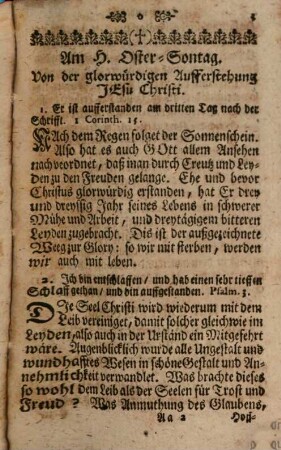 Am H. Oster-Sontag.
Von der glorwürdigen Aufferstehung
JEsu Christi.
1. Er ist aufferstanden am dritten Tag nach der
Schrifft. 1 Corinth. 15.
NAch dem Regen folget der Sonnenschein.
Also hat es auch GOtt allem Ansehen
nach verordnet, daß man durch Creutz und Ley-
den zu den Freuden gelange. Ehe und bevor
Christus glorwürdig erstanden, hat Er drey
und dreyssig Jahr seines Lebens in schwerer
Mühe und Arbeit, und dreytägigem bitteren
Leyden zugebracht. Dis ist der außgezeichnete
Weeg zur Glory: so wir mit sterben, werden
wir auch mit leben.
2. Ich bin entschlaffen/ und hab einen sehr tieffen
Schlaff gethan/ und bin auffgestanden. Psalm. 3.
DJe Seel Christi wird wiederum mit dem
Leib vereiniget, damit solcher gleichwie im
Leyden, also auch in der Urständ ein Mitgefehrt
wäre. Augenblicklich wurde alle Ungestalt und
wundhafftes Wesen in schöne Gestalt und An-
nehmlichkeit verwandlet. Was brachte dieses
so wohl dem Leib als der Seelen für Trost und
Freud? Was Anmuthung des Glaubens,
Aa 2 Hoff-